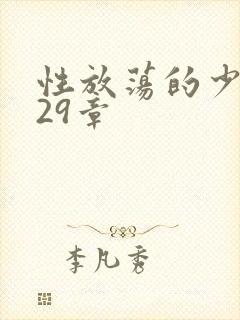 性放荡的少
29章
李凡秀